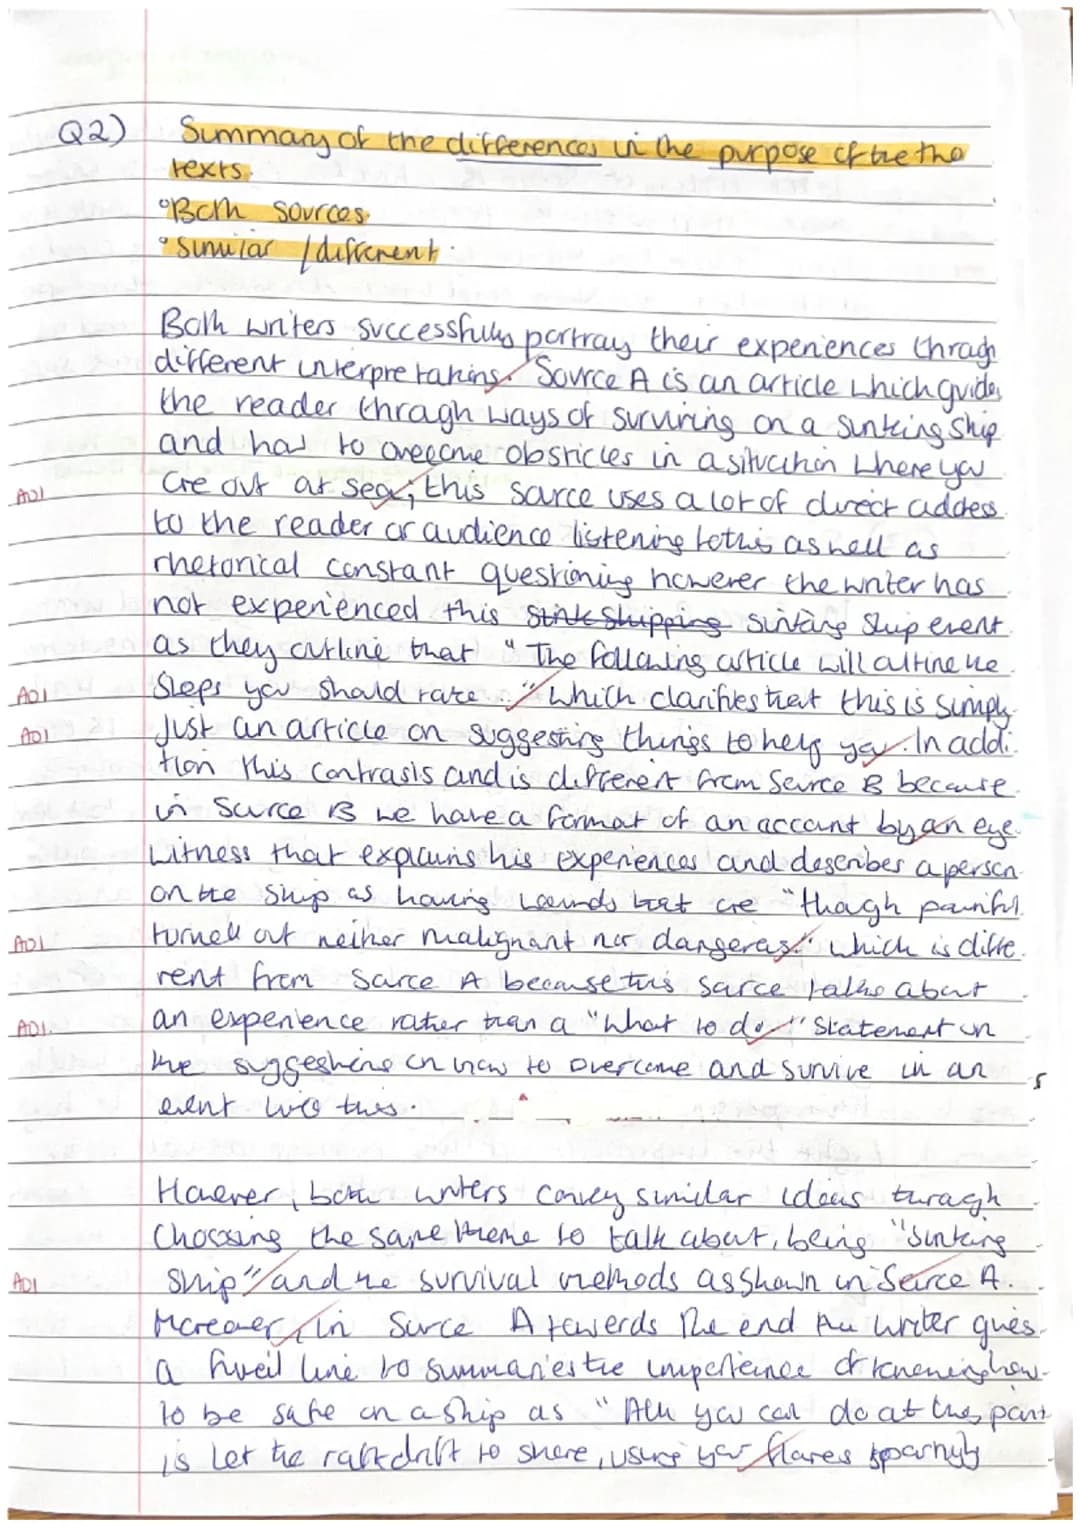 Q2) Summary of the differences in the purpose of the the
texts.
°Both sources.
°Similar / different.
Both writers successfully portray their experiences through
different interpretations. Source A is an article which guides
the reader through ways of surviving on a sinking ship
and has to overcome obsticles in a situation where you
AO1 are out at sea; this source uses a lot of direct address
to the reader or audience listening to this as well as
rhetorical constant questioning however the writer has
not experienced this sink shipping sinking ship event
as they outline that "The following article will outline the
AO1 steps you should take.." which clarifies that this is simply
AO1 just an article on suggesting things to help you. In addi-
tion this contrasts and is different from Source B because
in Source B we have a format of an account by an eye-
witness that explains his experiences and describes a person
on the ship as having wounds that are "though painful
AO1 turned out neither malignant nor dangerous". which is diffe-
rent from Source A because this source talks about
AO1 an experience rather than a "What to do" statement on
the suggestions on how to overcome and survive in an
event like this.
However, both writers convey similar ideas through
choosing the same theme to talk about, being "sinking
AO1 ship" and the survival methods as shown in Source A.
Moreover, in Source A towards the end the writer gives
a line to summaries the importance of knowing how
to be safe on a ship as "All you can do at this point
is let the raft drift to shore, using your flares sparingly